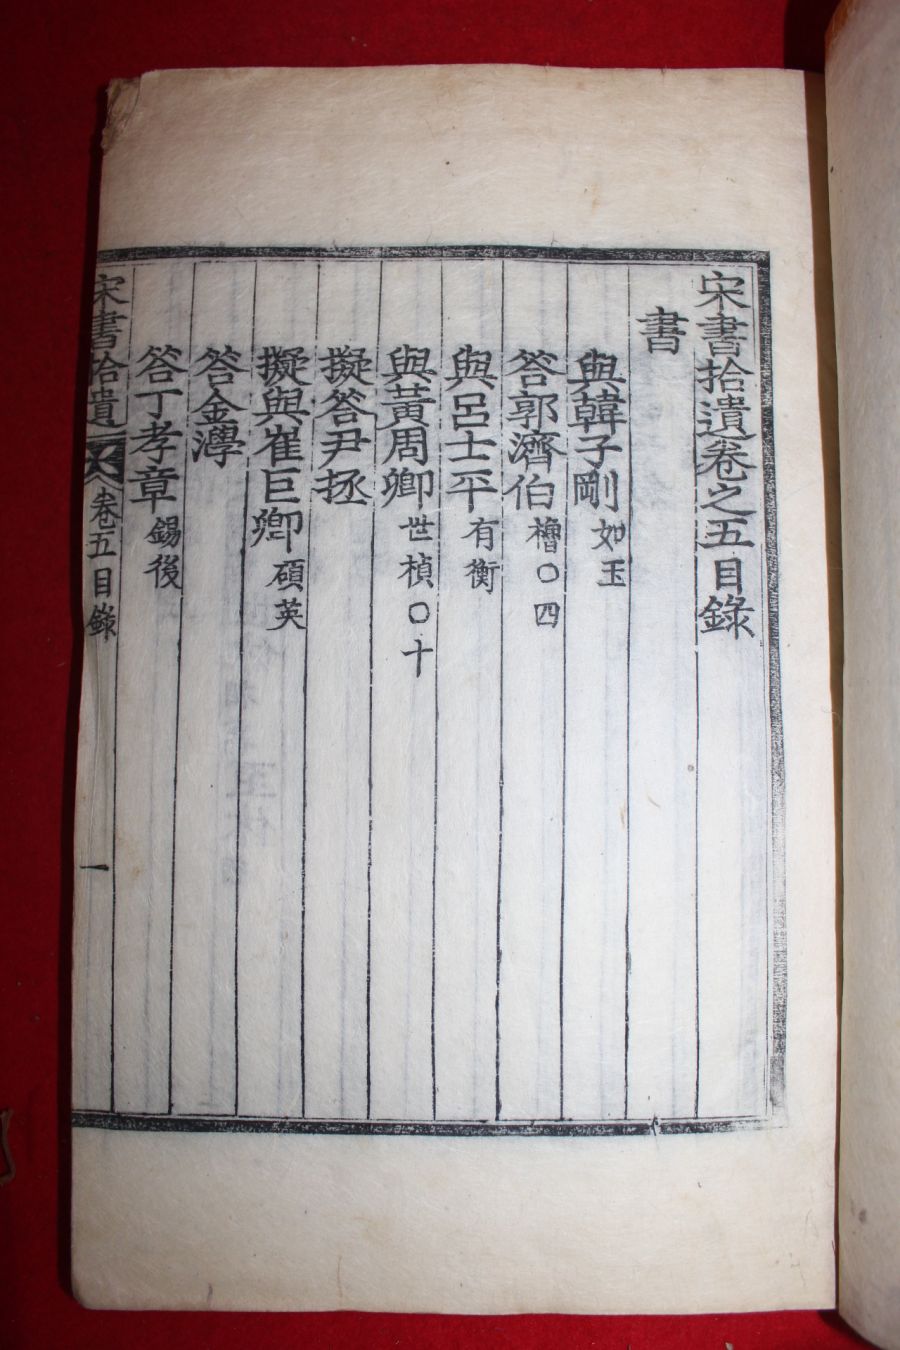 宋書拾遺卷之五目錄
書
與韓子剛 如玉
答郭濟伯 櫓○四
與呂士平 有衡
與黃周卿 世楨○十
擬答尹拯
擬與崔巨卿 碩英
答金澩
答丁孝章 錫後
宋書拾遺 卷五目錄 一